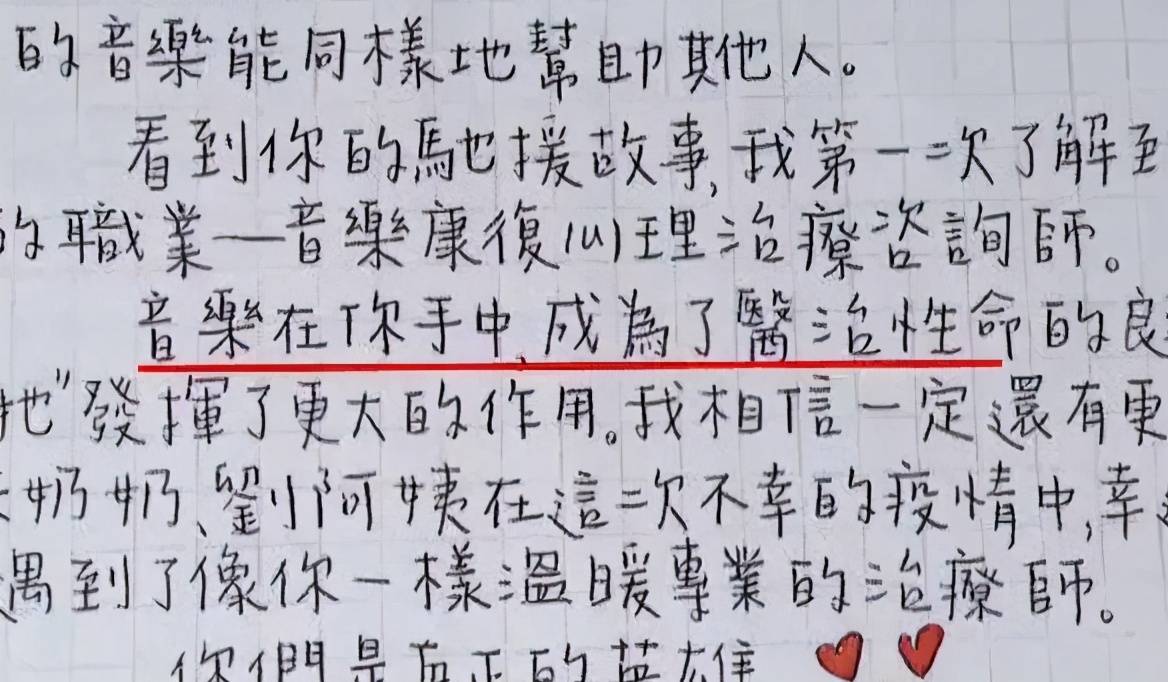 的音樂能同樣地幫助其他人。
看到你的馳援故事,我第一次了解至
的職業——音樂康復心理治療咨詢師。
音樂在你手中,成為了醫治性命的良
地"發揮了更大的作用。我相信一定還有更
奶奶、劉阿姨在這次不幸的疫情中,幸
遇到了像你一樣溫暖專業的治療師。
你們是真正的英雄